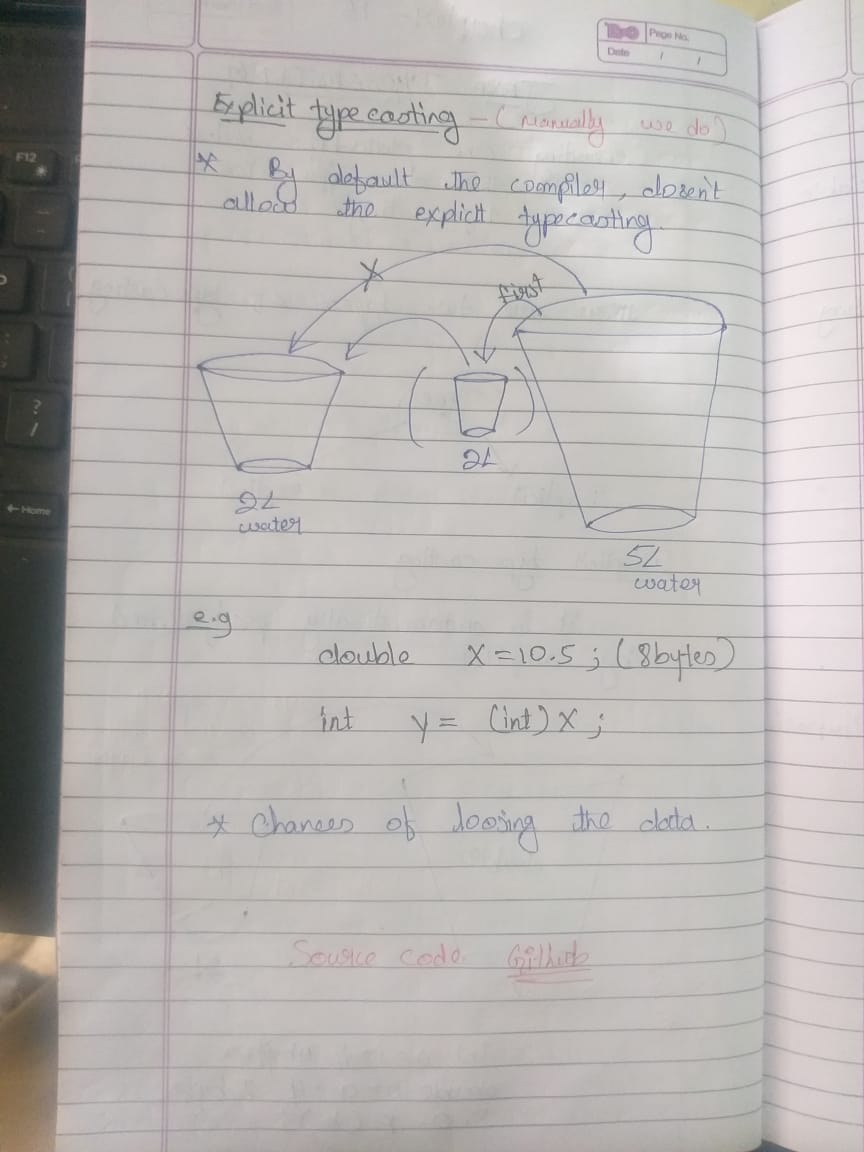 Page No.
Date / /
Explicit type casting - (Manually we do)
* By default the compiler, dosen't
allow the explicit typecasting.
X
first
2L
2L
water
5L
water
e.g
double x = 10.5 ; (8bytes)
int y = (int) x ;
* Chances of loosing the data.
Source code Github
F12
?
/
← Home